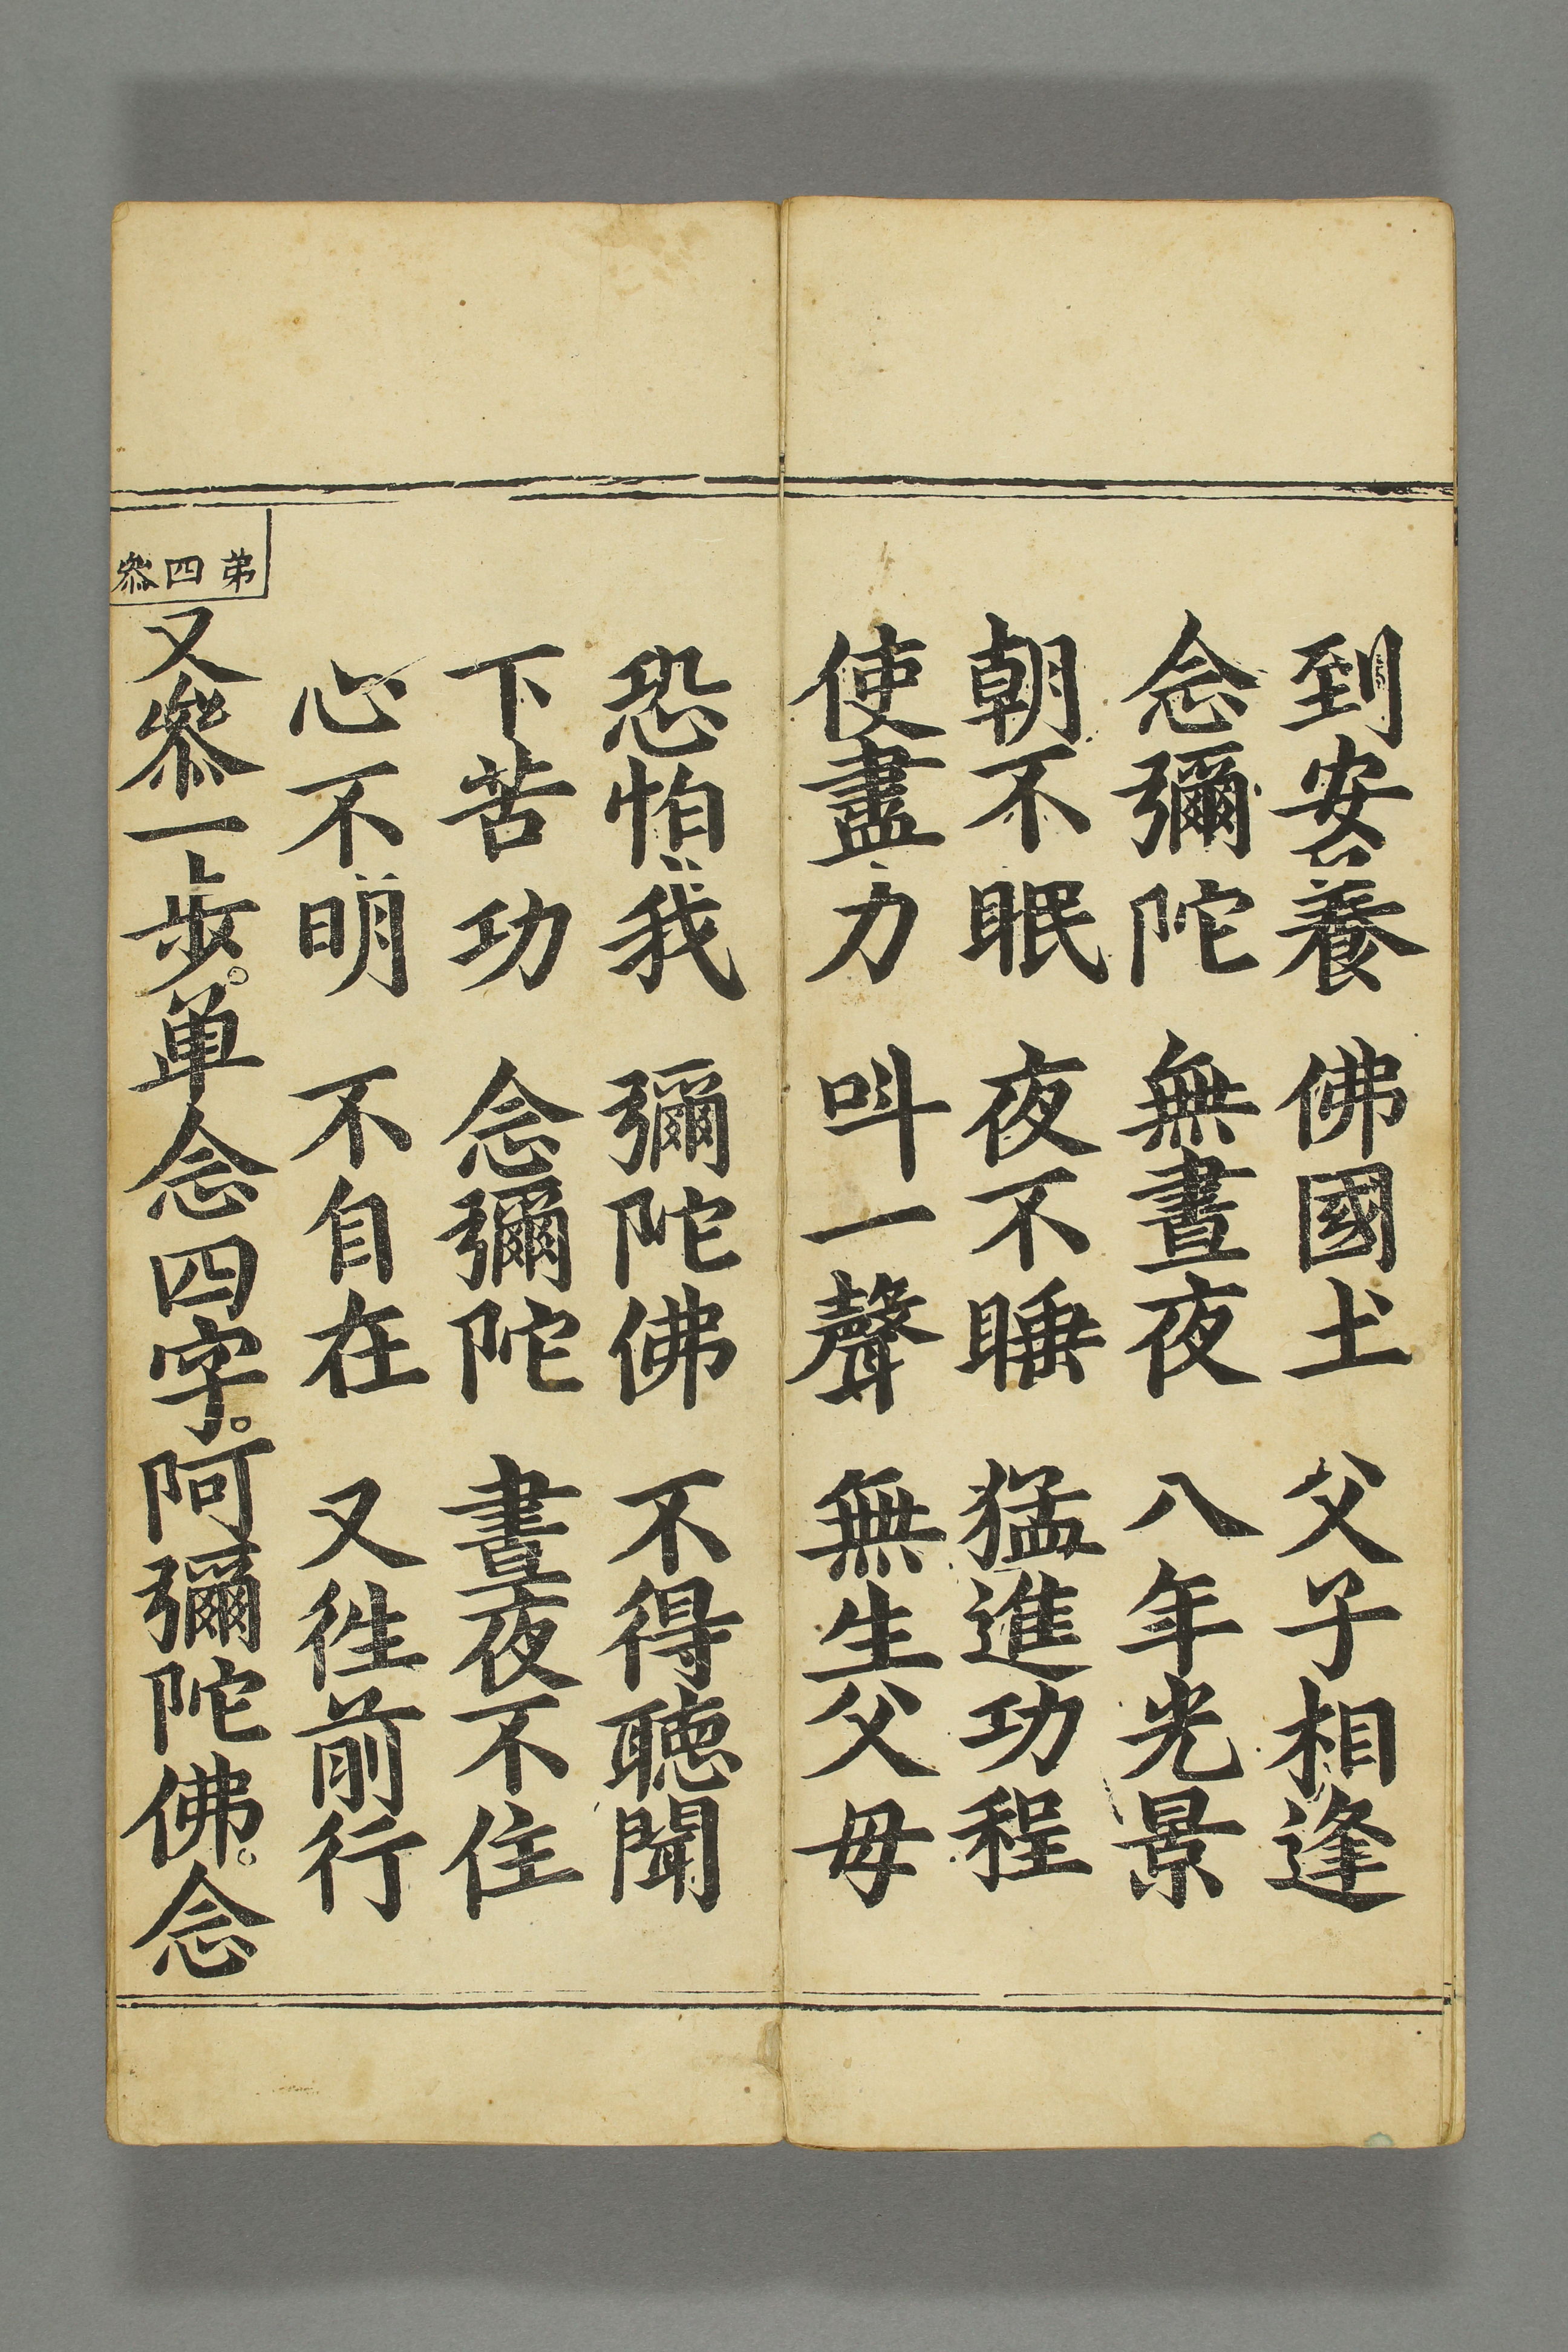 到安養　佛國土　父子相逢
念彌陀　無晝夜　八年光景
朝不眠　夜不睡　猛進功程
使盡力　叫一聲　無生父母
恐怕我　彌陀佛　不得聴聞
下苦功　念彌陀　晝夜不住
心不明　不自在　又徃前行
弟四叅
又叅一步。单念四字。阿彌陀佛。念